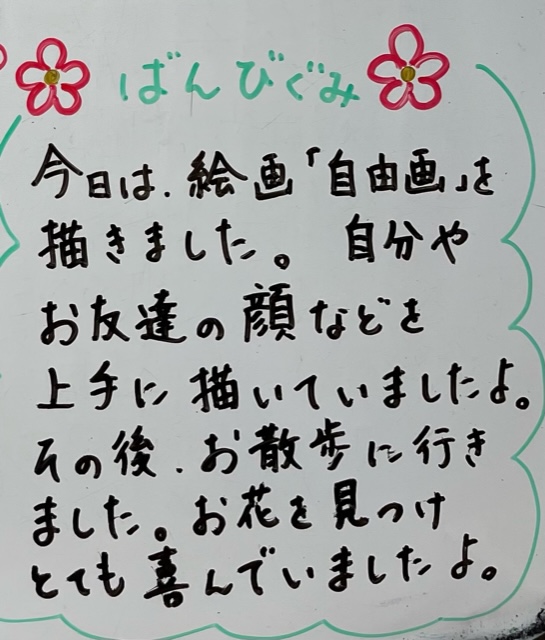 ばんびぐみ
今日は、絵画「自由画」を
描きました。 自分や
お友達の顔などを
上手に描いていましたよ。
その後、お散歩に行き
ました。お花を見つけ
とても喜んでいましたよ。